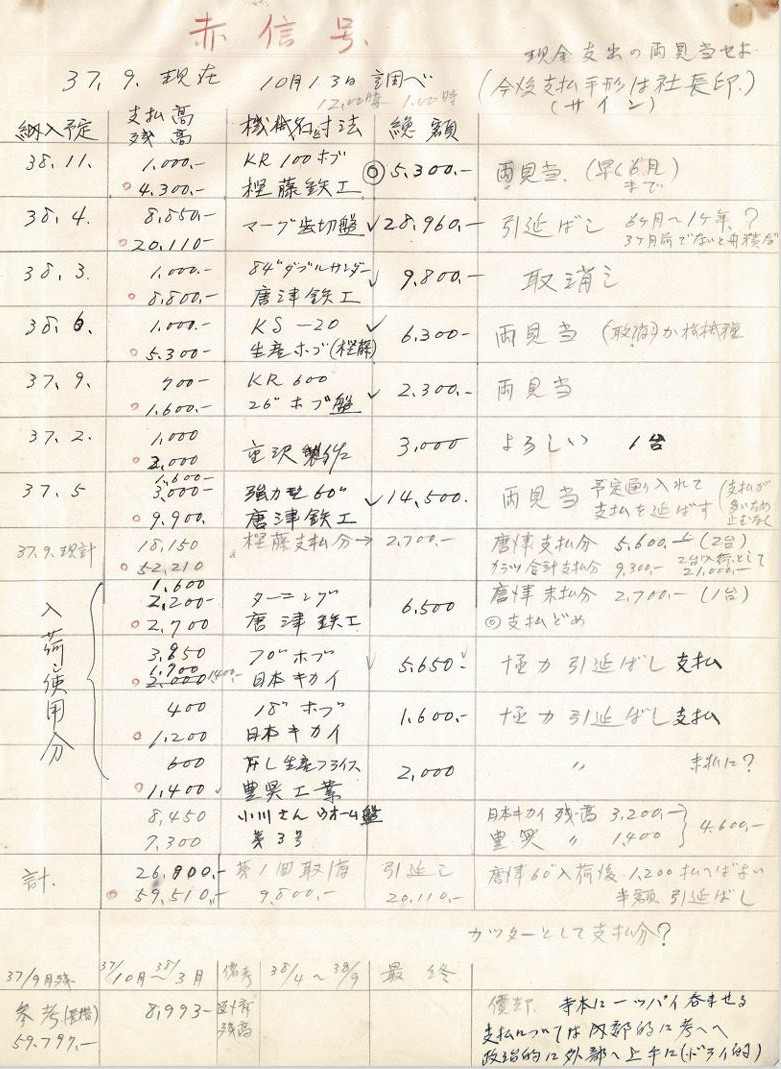 赤信号.
現金支出の両見当せよ
37.9.現在 10月13日 調べ (今後支払手形は社長印.)
12.00時 1.00時 (サイン)
納入予定 支払高 残高 機械名と寸法 総額
38.11. 1.000.- KR 100 ホブ ◎5.300.- 両見当. (早く6月まで)
○4.300.- 樫藤鉄工
38.4. 8.850.- マーブ歯切盤 ✓28,960.- 引延ばし 6ヶ月〜1ヶ年.?
○20.110- 3ヶ月前でないと
38.3. 1.000.- 84"ダブルサンダー ✓ 9.800.- 取消し
○8.800.- 唐津鉄工
38.6. 1.000.- KS-20 ✓ 6.300- 両見当 (取消)か機械種
○5.300- 生産ホブ(樫藤)
37.9. 700- KR 600 ✓ 2.300.- 両見当
○1.600.- 26"ホブ盤
37.2. 1,000 重沢製作 3,000 よろしい 1台
○2,000
37.5 1,600- 3,000- 強力型60" ✓14,500. 両見当 予定通り入れて支払を延ばす (支払が多いため止むなく
○9.900. 唐津鉄工
37.9.現計 18,150 樫藤支払分→ 2.700.- 唐津支払分 5.600.- (2台)
○52,210 カラツ合計支払分 9,300.- 2台入荷として 21,000.-
入荷し使用分
1,600 2,200- ターニング 6,500 唐津未払分 2.700.- (1台)
○2,700 唐津鉄工 ◎支払どめ
3,850 1,900 70"ホブ ✓ 5.650.- 極力引延ばし支払
○2,000 1400- 日本キカイ
400 18"ホブ 1.600.- 極力引延ばし支払
○1,200 日本キカイ
600 生産フライス 2,000 〃 未払に?
○1,400 豊興工業
8,450 小川さん ウオーム盤 日本キカイ残高 3,200.-
7,300 第3号 豊興 〃 1,400 } 4.600.-
計. 26,900.- 第1回取消 引延し 唐津60"入荷後.1,200払へばよい
○59,510,- 9,800.- 20,110,- 半額引延ばし
カッターとして支払分?
37/9月残 37/10月〜38/3月 備考 38/4〜38/9 最終
参考 8,993- 残高 償却. 寺本に一ツパイ呑ませる
59.797.- 支払については内部的に考へへ
政治的に外部へ上手に(ドライ的)